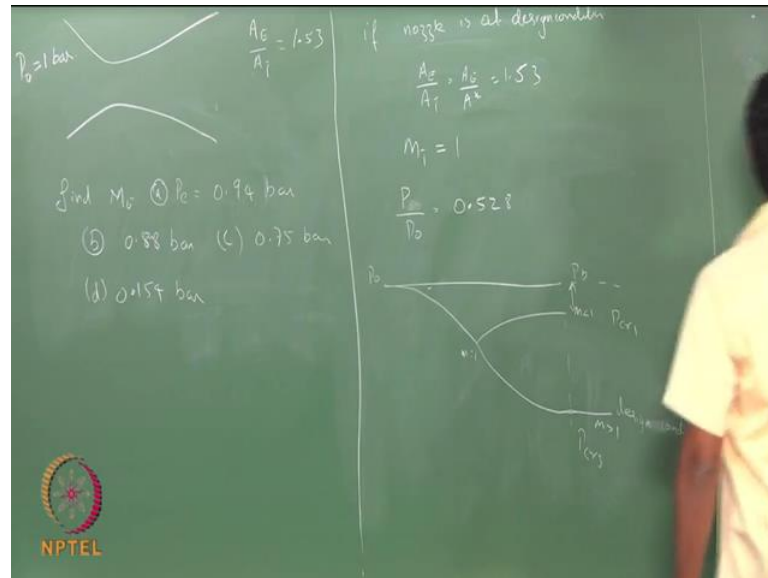 P₀=1 bar
A_E/A_T = 1.53
find M_E ⓐ P_e = 0.94 bar
ⓑ 0.88 bar (c) 0.75 bar
(d) 0.154 bar
if nozzle is at design
A_E/A_T = A_E/A* = 1.53
M_T = 1
P/P₀ = 0.528
P₀
P_b - -
M<1 P_cr1
M=1
M>1 design cond
P_cr3
NPTEL